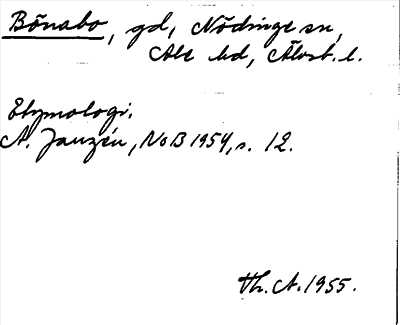 Bönabo, gd, Nödinge sn,
Ale hd, Älvsb. l.
Etymologi.
A. Janzén, NoB 1954, s. 12.
Th. A. 1955.